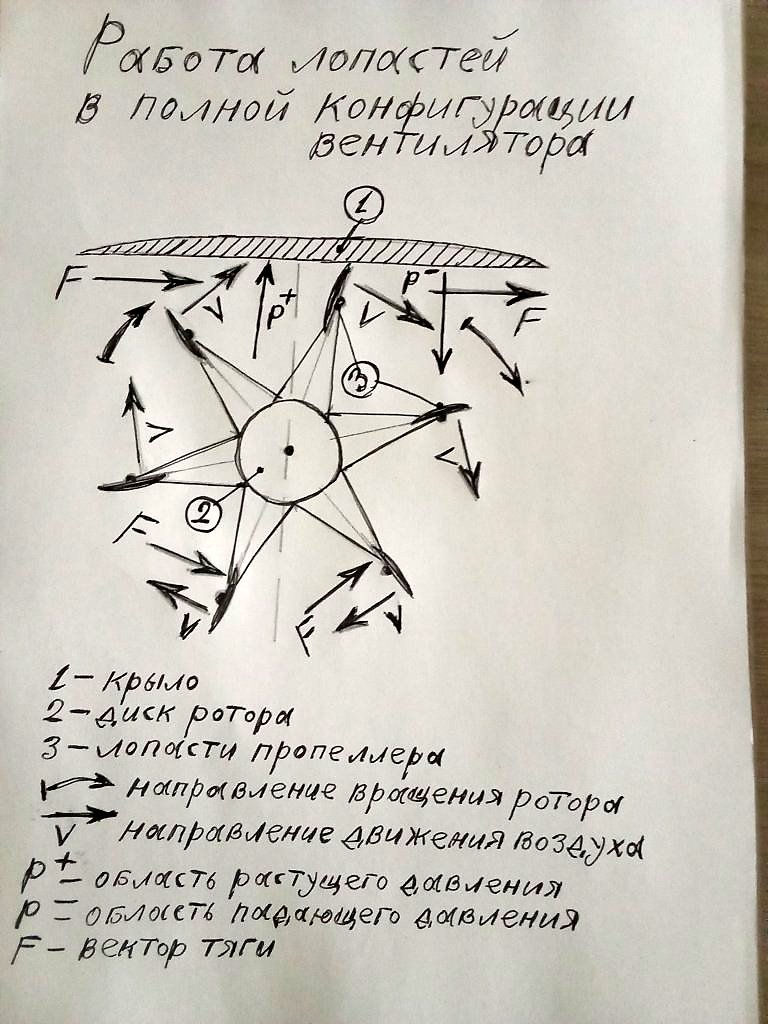 Работа лопастей
в полной конфигурации
вентилятора
1
F
V
P+
V
P-
F
3
V
V
2
F
V
F
V
1 - крыло
2 - диск ротора
3 - лопасти пропеллера
направление вращения ротора
V направление движения воздуха
P+ - область растущего давления
P- - область падающего давления
F - вектор тяги